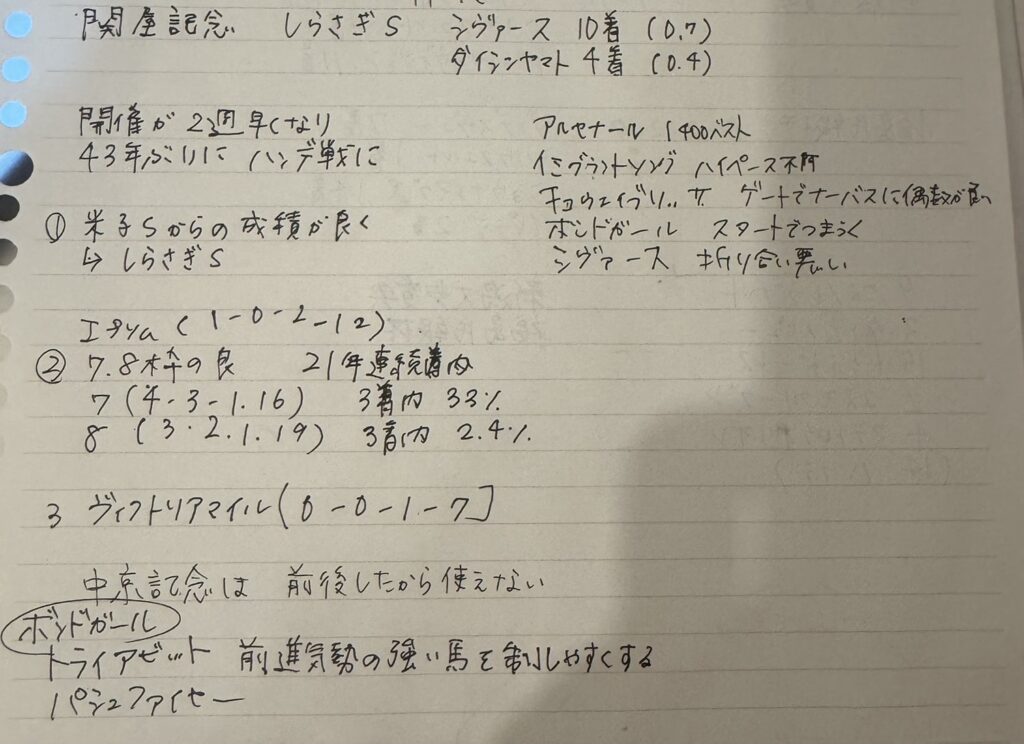 関屋記念 しらさぎS シヴァース 10着 (0.7)
ダイシンヤマト 4着 (0.4)
開催が2週早くなり
43年ぶりに ハンデ戦に
アルセナール 1400ベスト
イミグラントソング ハイペース不可
キョウエイブリッサ ゲートでナーバスに偶数が良い
ボンドガール スタートでつまづく
シヴァース 折り合い悪い
① 米子Sからの成績が良く
↳ しらさぎS
エプソム (1-0-2-12)
② 7.8枠の良 21年連続着内
7 (4-3-1.16) 3着内 33%
8 (3.2.1.19) 3着内 2.4%
3 ヴィクトリアマイル(0-0-1-7]
中京記念は 前後したから使えない
ボンドガール
トライアゼット 前進気勢の強い馬を制しやすくする
パシュファイヤー